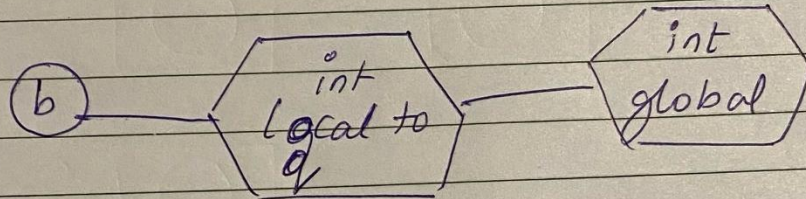 b
int
local to
q
int
global